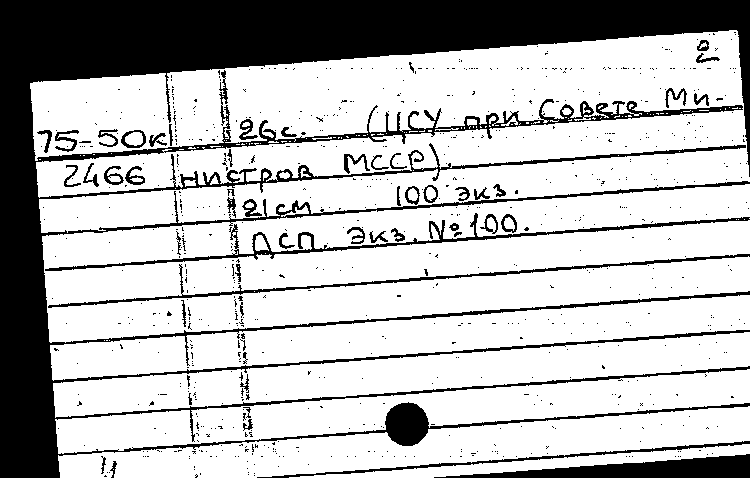 2
75-50к 26с. (ЦСУ при Совете Ми-
2466 нистров МССР).
21см. 100 экз.
ДСП. Экз. №100.